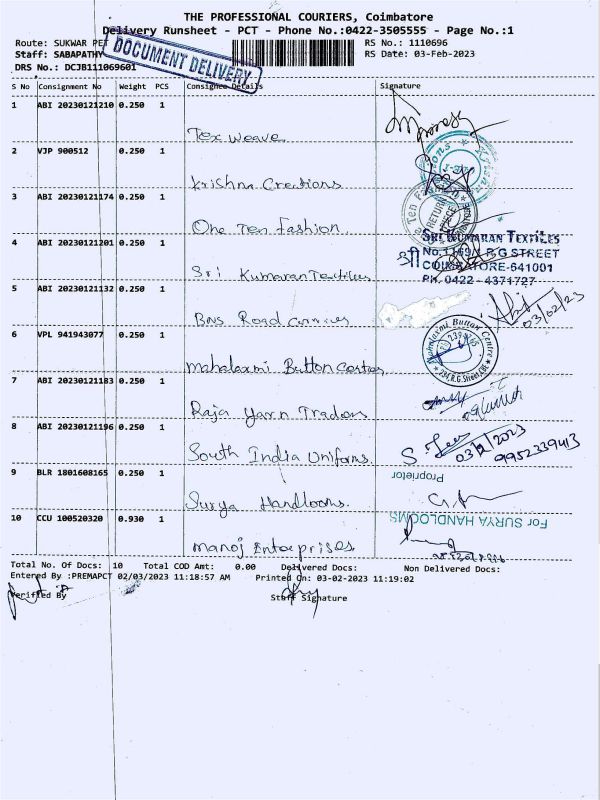 THE PROFESSIONAL COURIERS, Coimbatore
Delivery Runsheet - PCT - Phone No.:0422-3505555 - Page No.:1
Route: SUKWAR PET
RS No.: 1110696
Staff: SABAPATHY
RS Date: 03-Feb-2023
DRS No.: DCJB111069601
DOCUMENT DELIVERY
S No Consignment No Weight PCS Consignee Details Signature
1 ABI 20230121210 0.250 1
Tex weave
2 VJP 900512 0.250 1
Krishna Creations
3 ABI 20230121174 0.250 1
One Ten Fashion
4 ABI 20230121201 0.250 1
SRI KUMARAN TEXTILES
R G STREET
COIMBATORE-641001
PH. 0422 - 4371727
Sri Kumaran Textiles
5 ABI 20230121132 0.250 1
03/02/23
BNS Road
6 VPL 941943077 0.250 1
Mahalaxmi Button Centre
Mahalaxmi Button Centres
7 ABI 20230121183 0.250 1
Raja Yarn Traders
8 ABI 20230121196 0.250 1
South India Uniforms
03/2/2023
9952339413
9 BLR 1801608165 0.250 1
Proprietor
Surya Handlooms
For SURYA HANDLOOMS
10 CCU 100520320 0.930 1
Manoj Enterprises
Total No. Of Docs: 10 Total COD Amt: 0.00 Delivered Docs: Non Delivered Docs:
Entered By :PREMAPCT 02/03/2023 11:18:57 AM Printed On: 03-02-2023 11:19:02
Verified By
Staff Signature